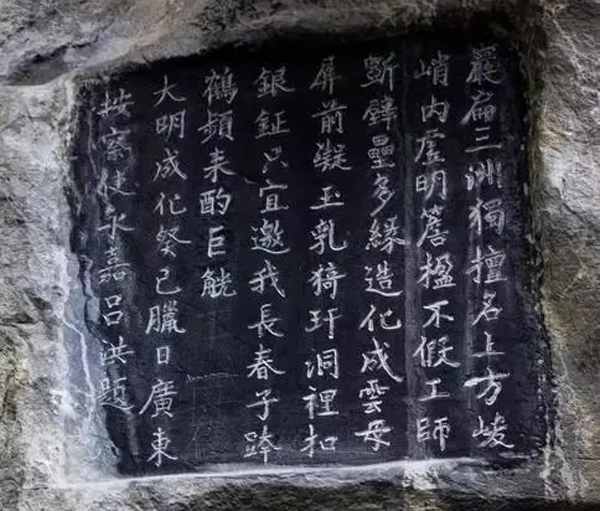 巖扁三洲獨擅名上方峻
峭内虛明簷楹不假工師
斲壁壘多緣造化成雲母
屏前凝玉乳猗玕洞裡扣
銀鉦只宜邀我長春子跨
鶴頻来酌巨觥
大明成化癸巳臘日廣東
按察使永嘉呂洪題